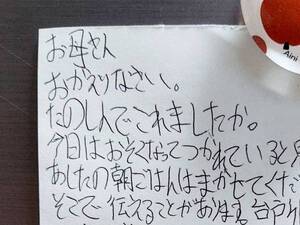 お母さん
おかえりなさい。
たのしんでこれましたか。
今日はおそくなってつかれていると
あしたの朝ごはんはまかせてくだ
そこで伝えることがあります。台戸
Aini